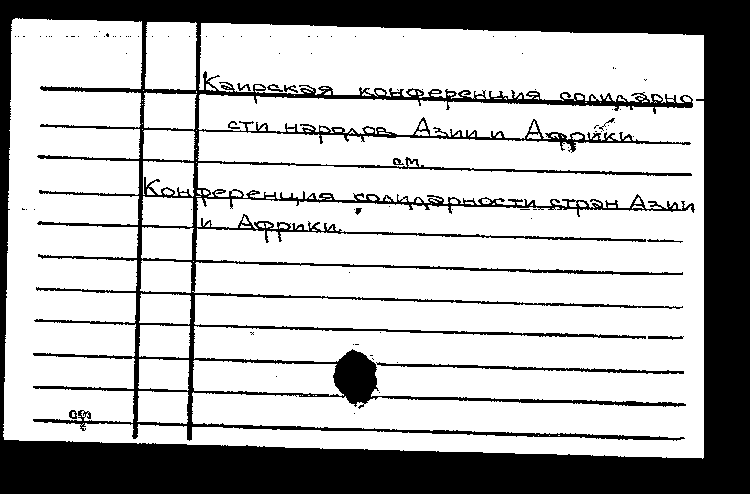 Каирская конференция солидарно-
сти народов Азии и Африки
см.
Конференция солидарности стран Азии
и Африки.